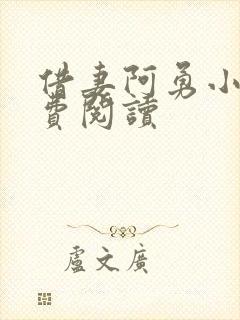 借妻阿勇小
費閱讀
盧文廣